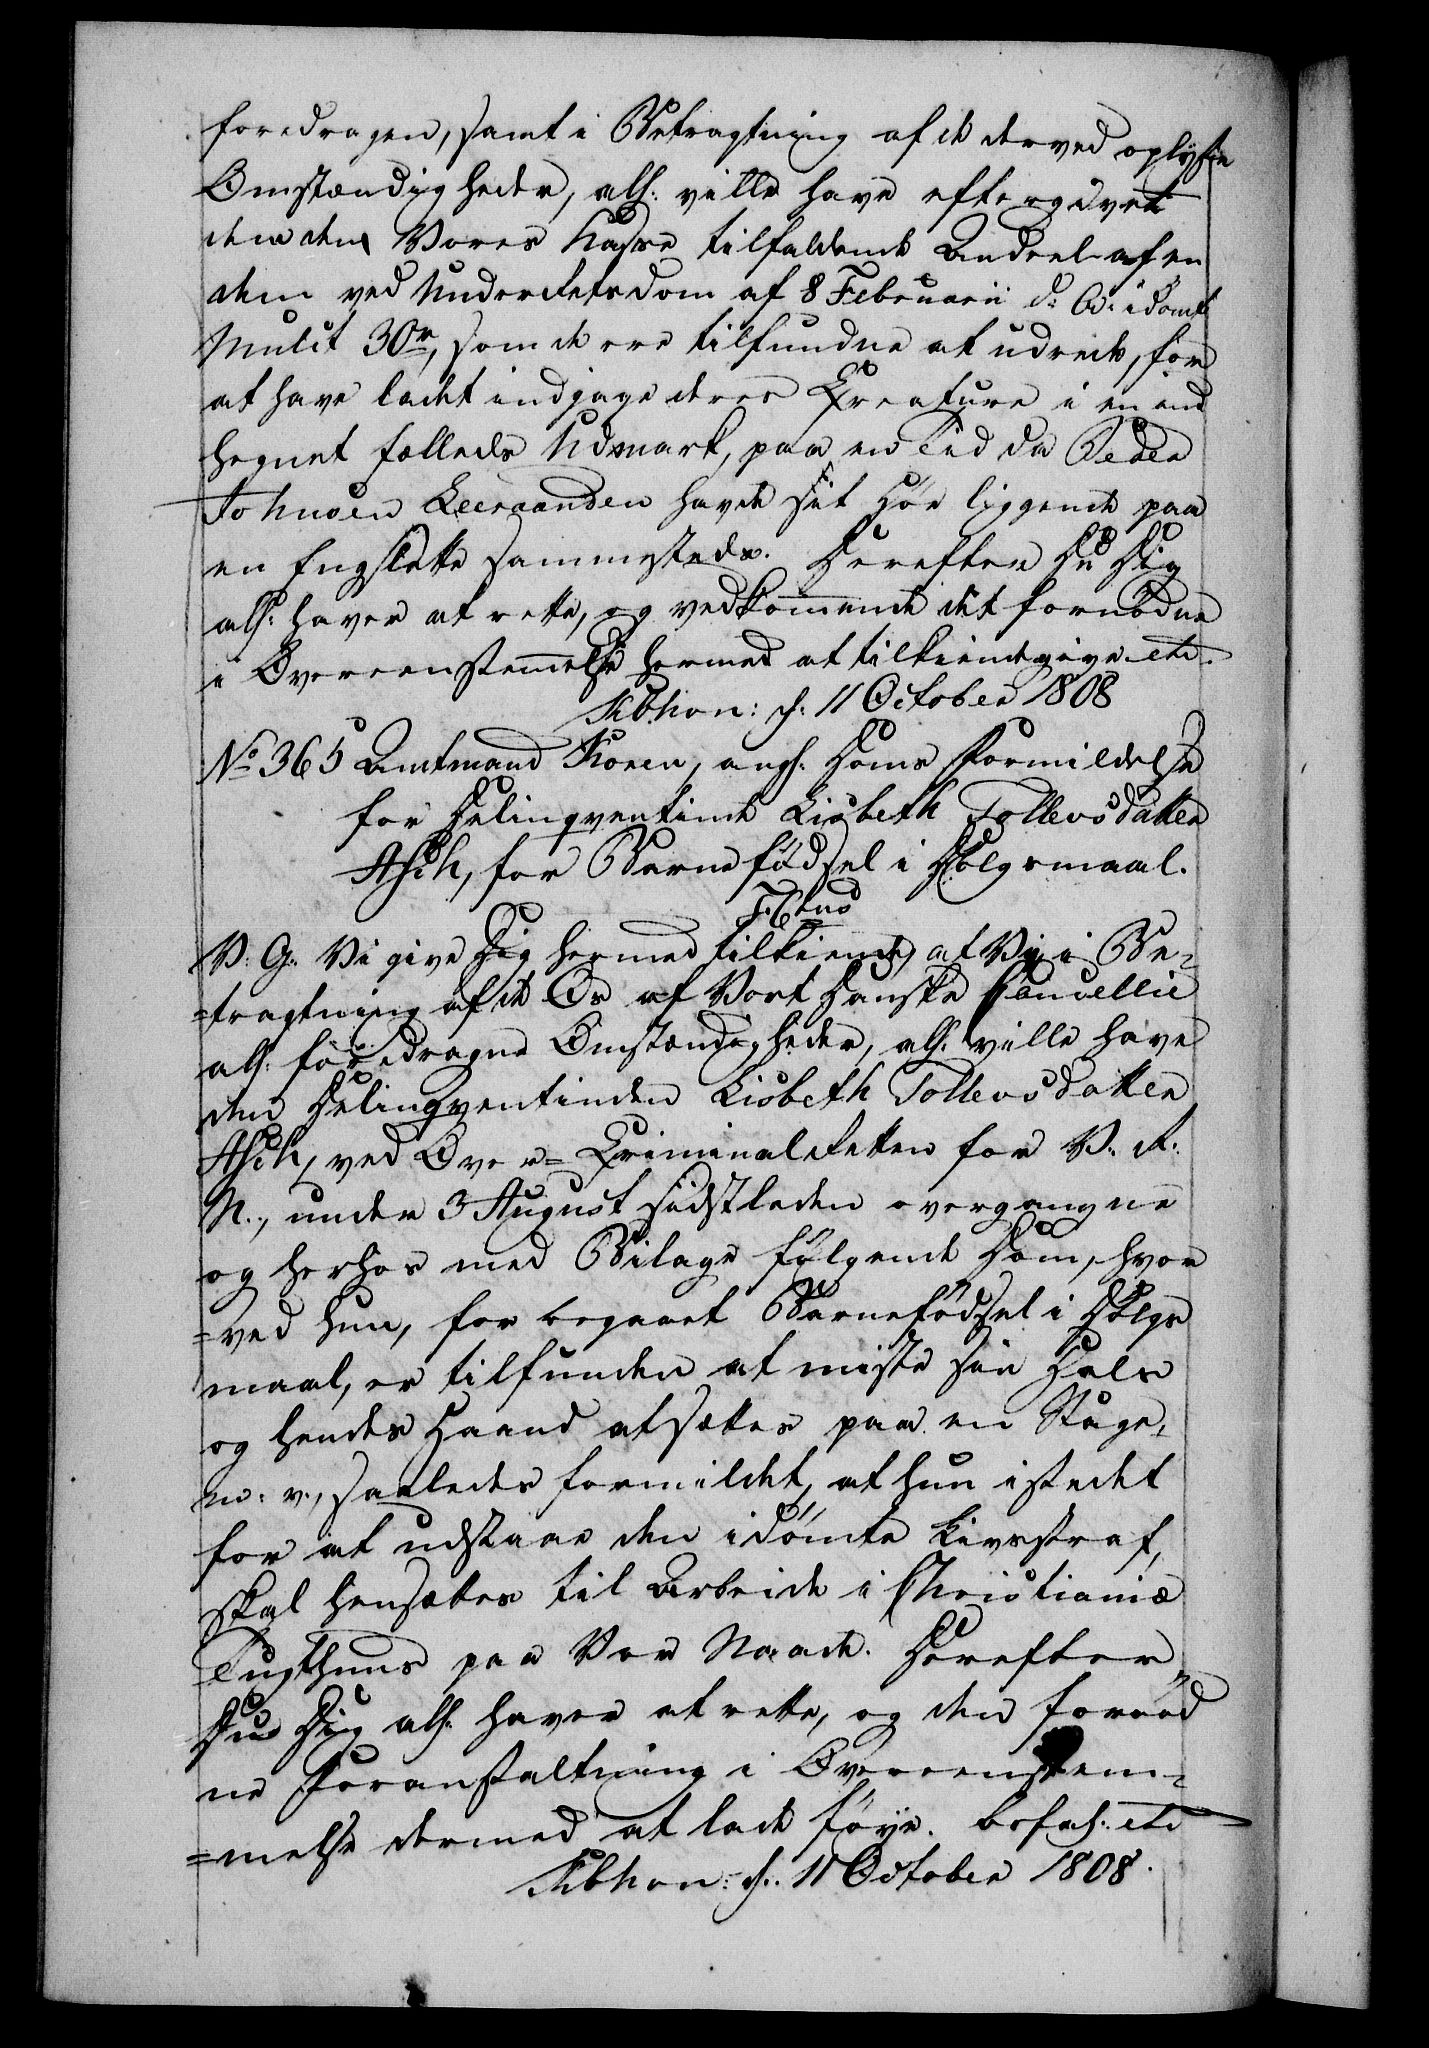 foredragen, samt i Betragtning af de derved oplyste
Omstændigheder, alh: ville have eftergivet
dem den Vores Kasse tilfaldende Andeel af en
dem ved Underretsdom af 8 Februarii d: A: idømt
Mulct 30 r, som de ere tilfundne at udrede, for
at have ladet indjage deres Creature i en ind
hegnet fælleds Udmark, paa en Tid da Peder
Johnsen Leeraanden havde sit Høe liggende paa
en Engslette sammesteds. Herefter Du Dig
alh: haver at rette, og vedkom̅ende det fornødne
i Overeenstem̅else hermed at tilkiendegive etc.
Kbhvn: d: 11 October 1808
No 365 Amtmand Koren, angh: Doms Formildelse
for Delinqventinde Lisbeth Tollevsdatter
Asch, for Barnefødsel i Dølgsmaal.
F: 6tus
V: G: Vi give Dig hermed tilkiende, at Vi, i Be-
=tragtning af de Os af Vort Danske Cancellie
alh: foredragne Omstændigheder, alh: ville have
den Delinqventinden Lisbeth Tollevsdatter
Asch, ved Over=Criminalretten for V: R:
N., under 3 August sidstleden overgangne
og herhos med Bilage følgende Dom, hvor
=ved hun, for begaaet Barnefødsel i Dølgs
maal, er tilfunden at miste sin Hals
og hendes Haand at sættes paa en Stage,
m: v., saaledes formildet, at hun istedet
for at udstaae den idømte Livsstraf,
skal hensættes til Arbeide i Christianiæ
Tugthuus paa Vor Naade. Herefter
Du Dig alh: haver at rette, og den fornød
ne Foranstaltning i Overeenstem-
=melse dermed at lade føye. Befah: etc
Kbhvn: d: 11 October 1808.